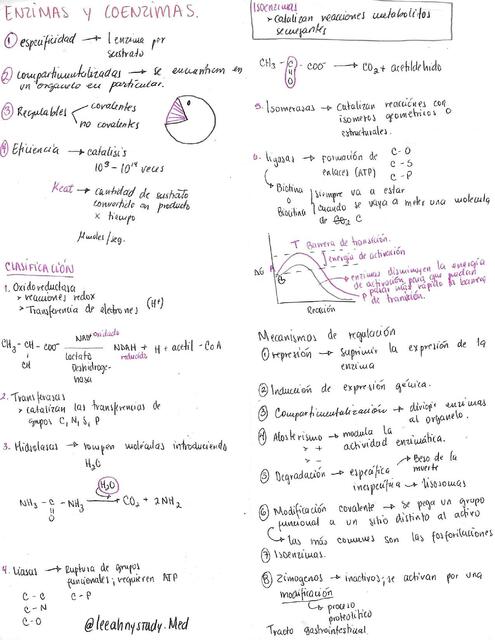 ENZIMAS Y COENZIMAS.
① especificidad → 1 enzima por
sustrato
② compartimentalizadas → se encuentran en
un organelo en particular.
③ Regulables
covalentes
no covalentes
④ Eficiencia → catalisis
veces
Kcat → cantidad de sustrato
convertido en producto
x tiempo
μmoles/seg.
CLASIFICACIÓN
1. Oxidoreductasa
> reacciones redox
> Transferencia de eletrones (H⁺)
CH₃-CH-COO⁻
OH
oxidado
lactato
NDAH + H + acetil-CoA
reducido
2. Transferasas
> catalizan las transferencias de
grupos C, N, S, P
3. Hidrolasas → rompen moléculas introduciendo
H₂O
H₂O
NH₃ - C - NH₃ → CO₂ + 2NH₂
O
4. Liasas → Ruptura de grupos
funcionales; requieren ATP
C - C C - P
C - N
C - O
@leeahnystudy.Med
Isoenzimas
> catalizan reacciones metabolitos
semejantes
CH₃ - C - COO⁻ → CO₂ + acetildehido
O
5. Isomerasas → Catalizan reacciones con
isomeros geométricos o
estructurales.
6. ligasas → Formación de
enlaces (ATP)
C-O
C-S
C-P
Biotina
o
Biocitina
siempre va a estar
cuando se vaya a meter una molecula
de CO₂ C
T Barrera de transición.
energía de activación
ΔG
enzimas disminuyen la energía
de activación para que puedan
P pasar más rápido la barrera
de transición.
Reacción
Mecanismos de regulación
① represión → suprimir la expresión de la
enzima
② Induccion de expresión génica.
③ Compartimentalización → dirigir enzimas
al organelo.
④ Alosterismo → modula la
actividad enzimática.
> +
> -
⑤ Degradación → específica → Beso de la
muerte
inespecífica → lisosomas
⑥ Modificación covalente → se pega un grupo
funcional a un sitio distinto al activo
las más comunes son las fosforilaciones
⑦ Isoenzimas.
⑧ Zimogenos → inactivos; se activan por una
modificación
proceso
proteolítico
Tracto gastrointestinal